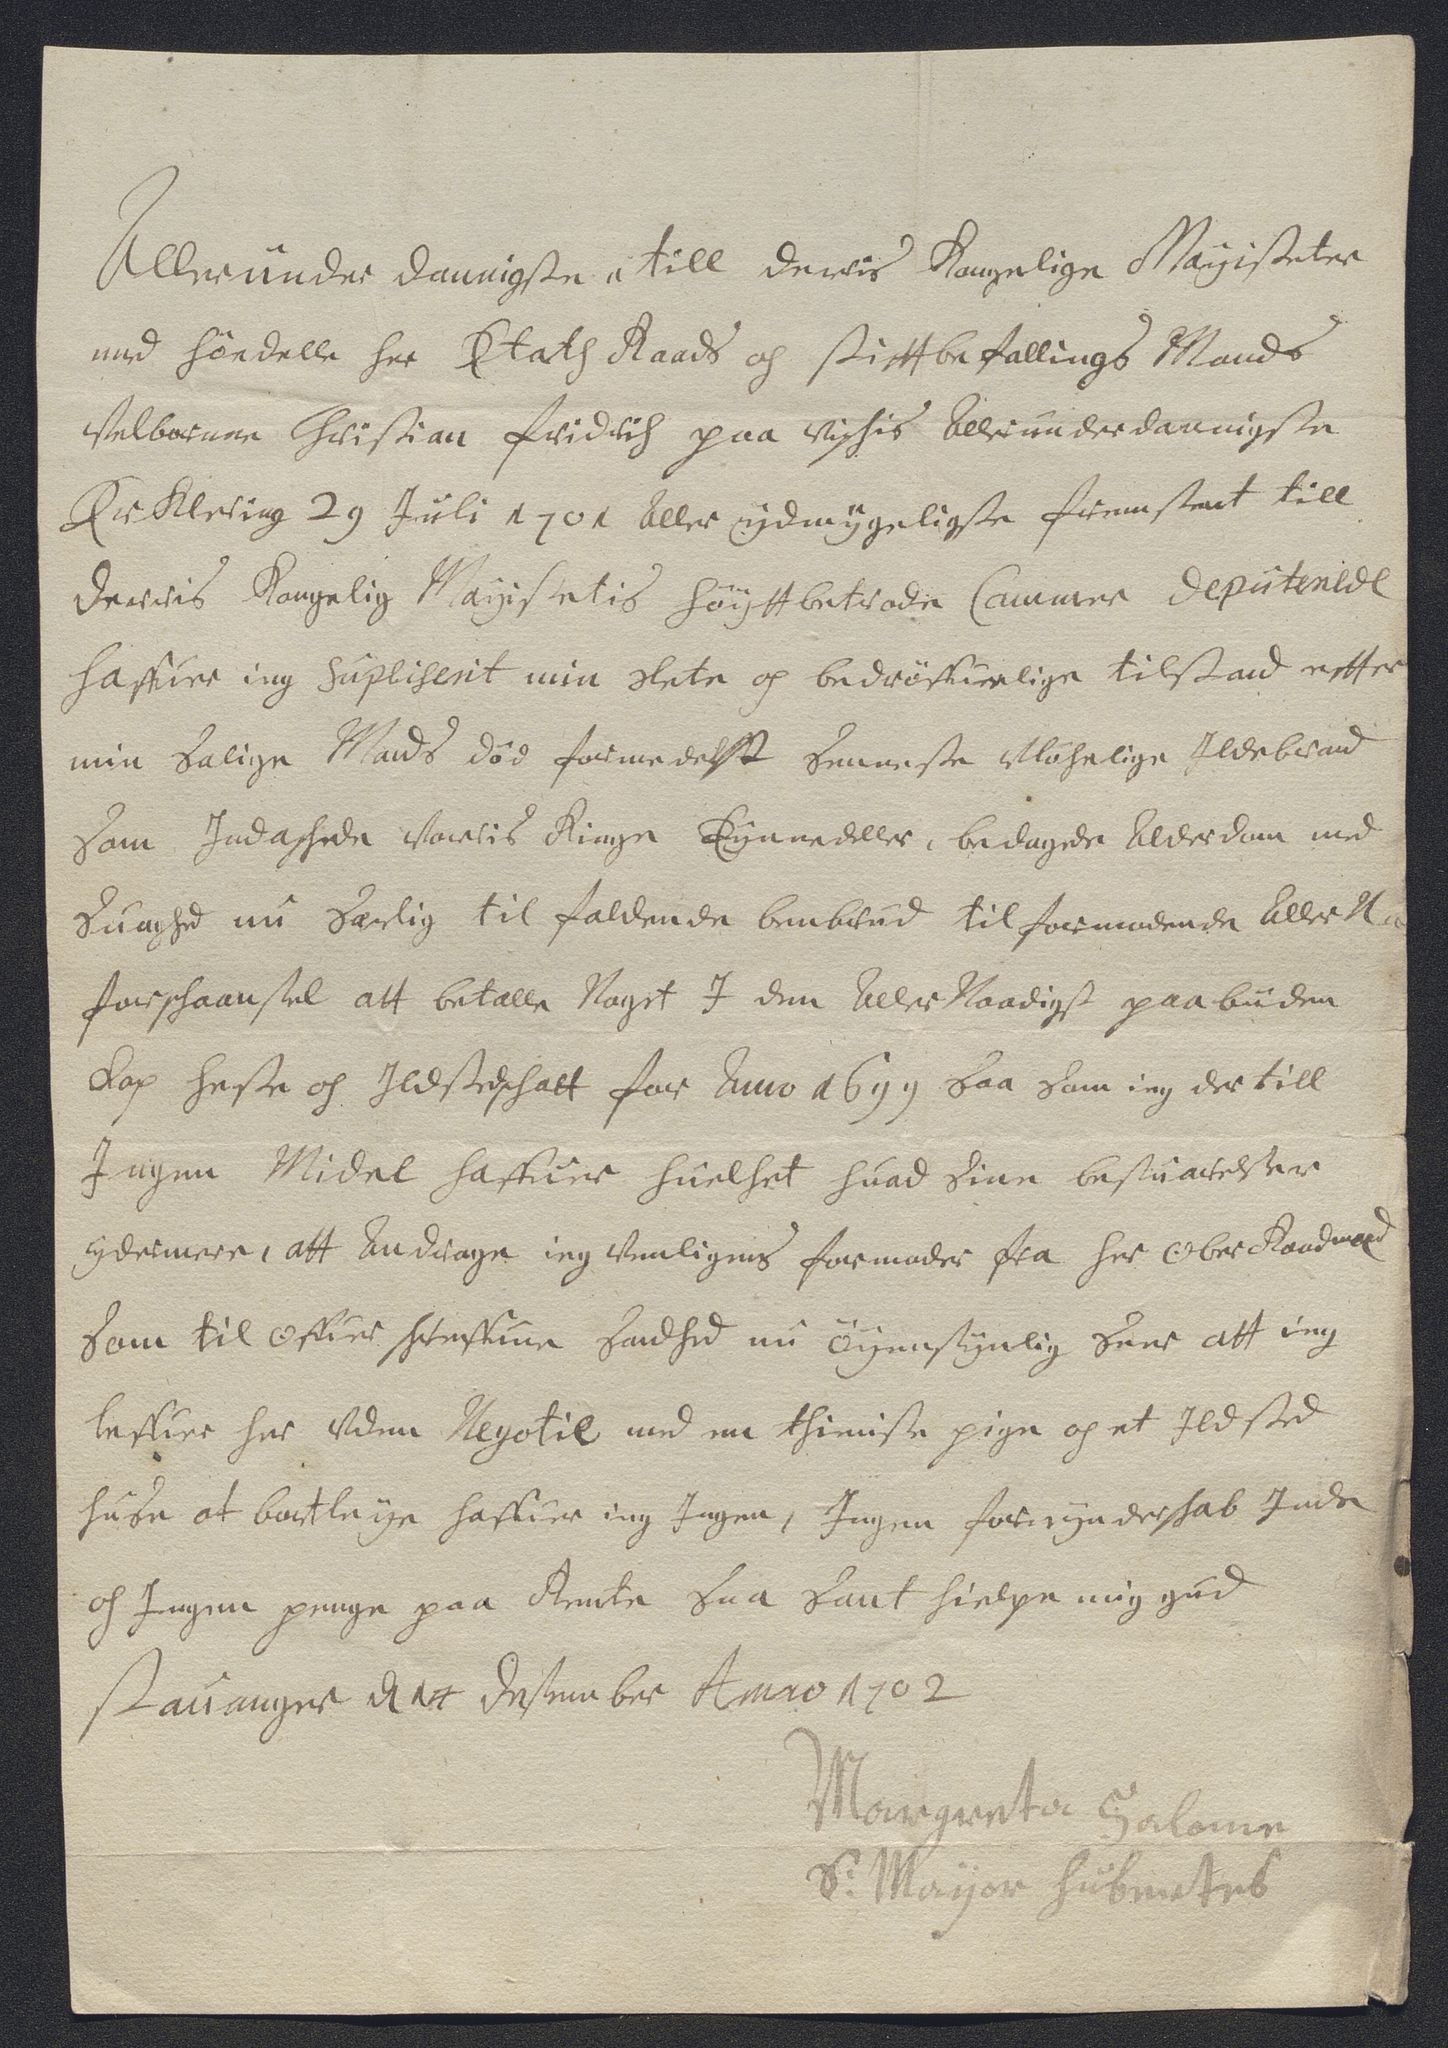 Allerunder dannigste till derris Kongelige Mayisteter
med höyedelle her Etath Raads og stifttbefallings Mands
Velborne Christian fridrich paa Allerunderdannigste
Erklering 29 Juli 1701 Aller ydmygeligste fremstent till
derris Kongelig Mayistetis höyttbetrode Cammer deputerede
haffuer ieg supliserit min slete og bedröffuelige tilstand effter
min Salige Mands död formedelst Senneste Ildebrand
Som Indaschede Vorris Ringe Eyennedeller, bedagede Alderdom med
Suaghed nu Serlig til faldende benbrud til formodende Aller
forschaansel att betalle Noget I den Aller Naadigst paabuden
Kop heste og Ildstedschatt for Anno 1699 Saa Som ieg der till
Ingen Midel haffuer huelhet huad Sine besuarelser
ydermere, att Andrage ieg Venligens formoder fra her Ober Raadmand
Som til Offuer schreffune Sandhed nu Öyensynlig Seer att ieg
leffuer her Vden Negotie med en thieniste pige og et Ildsted
huse at bortleye haffuer ieg Ingen, Ingen formynderschab Inde
og Ingen penge paa Rente Saa Sant hielpe mig gud
Stauanger d 14 desember Anno 1702
Margreta Salome
S: Mayor Hubnerts